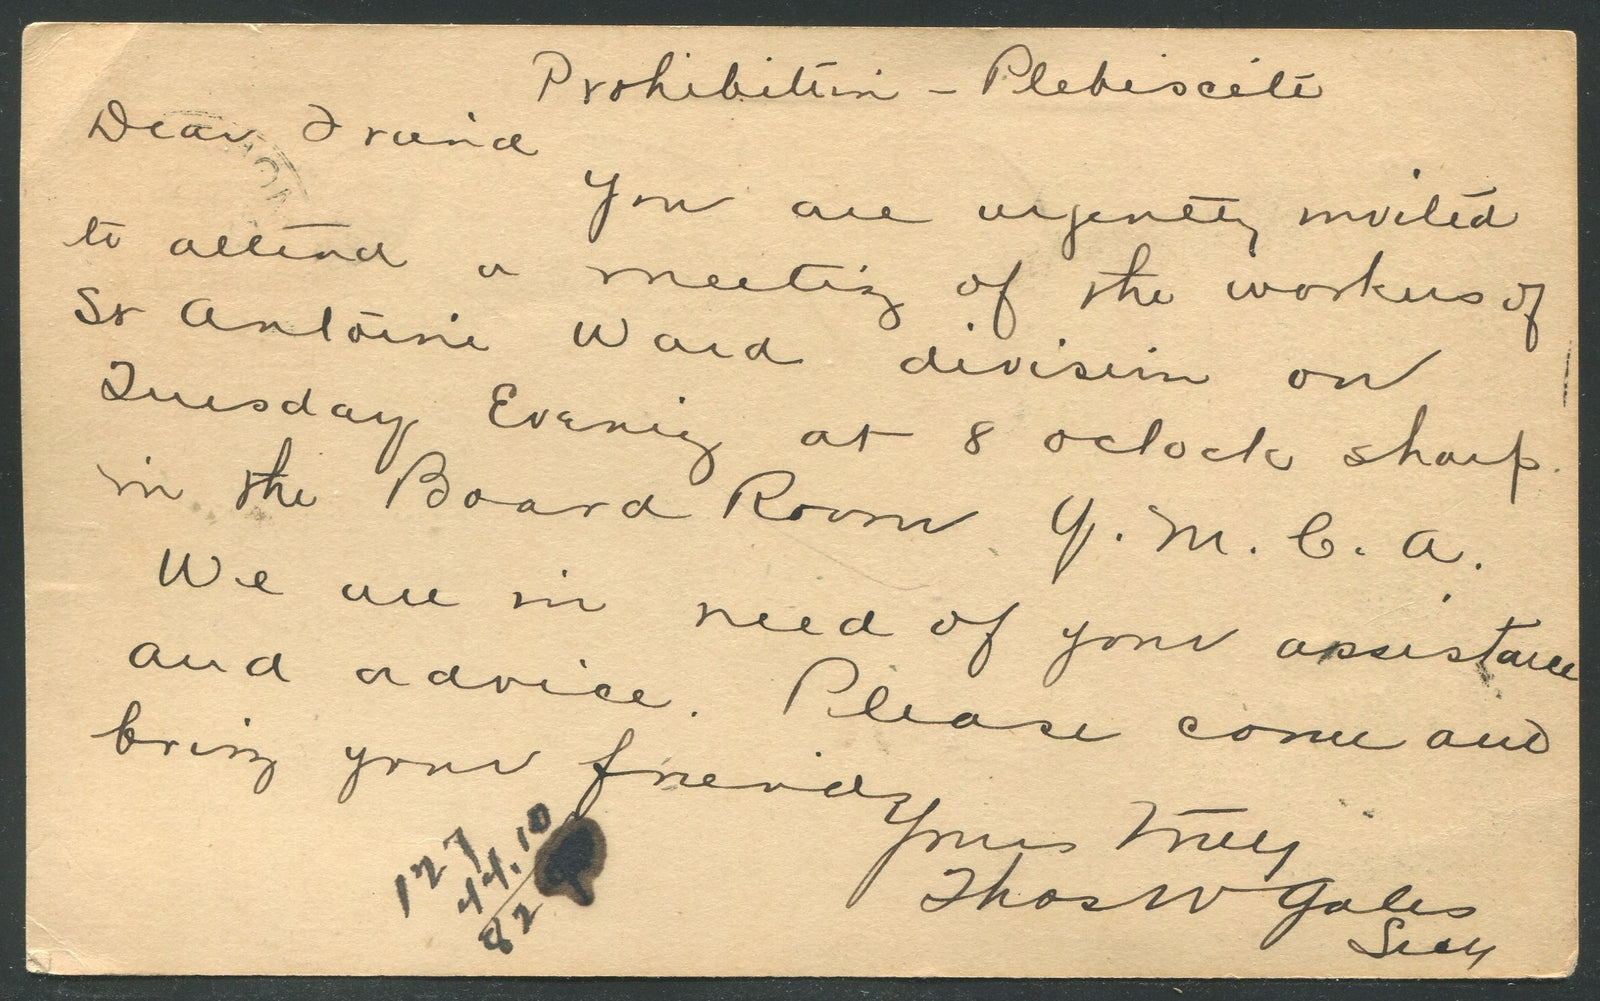 Prohibition - Plebiscite
Dear Friend
You are urgently invited
to attend a meeting of the workers of
St Antoine Ward division on
Tuesday Evening at 8 oclock sharp.
in the Board Room Y. M. C. A.
We are in need of your assistance
and advice. Please come and
bring your friends
Yours Truly
Thos W Gales
Secy
127
44.10
82